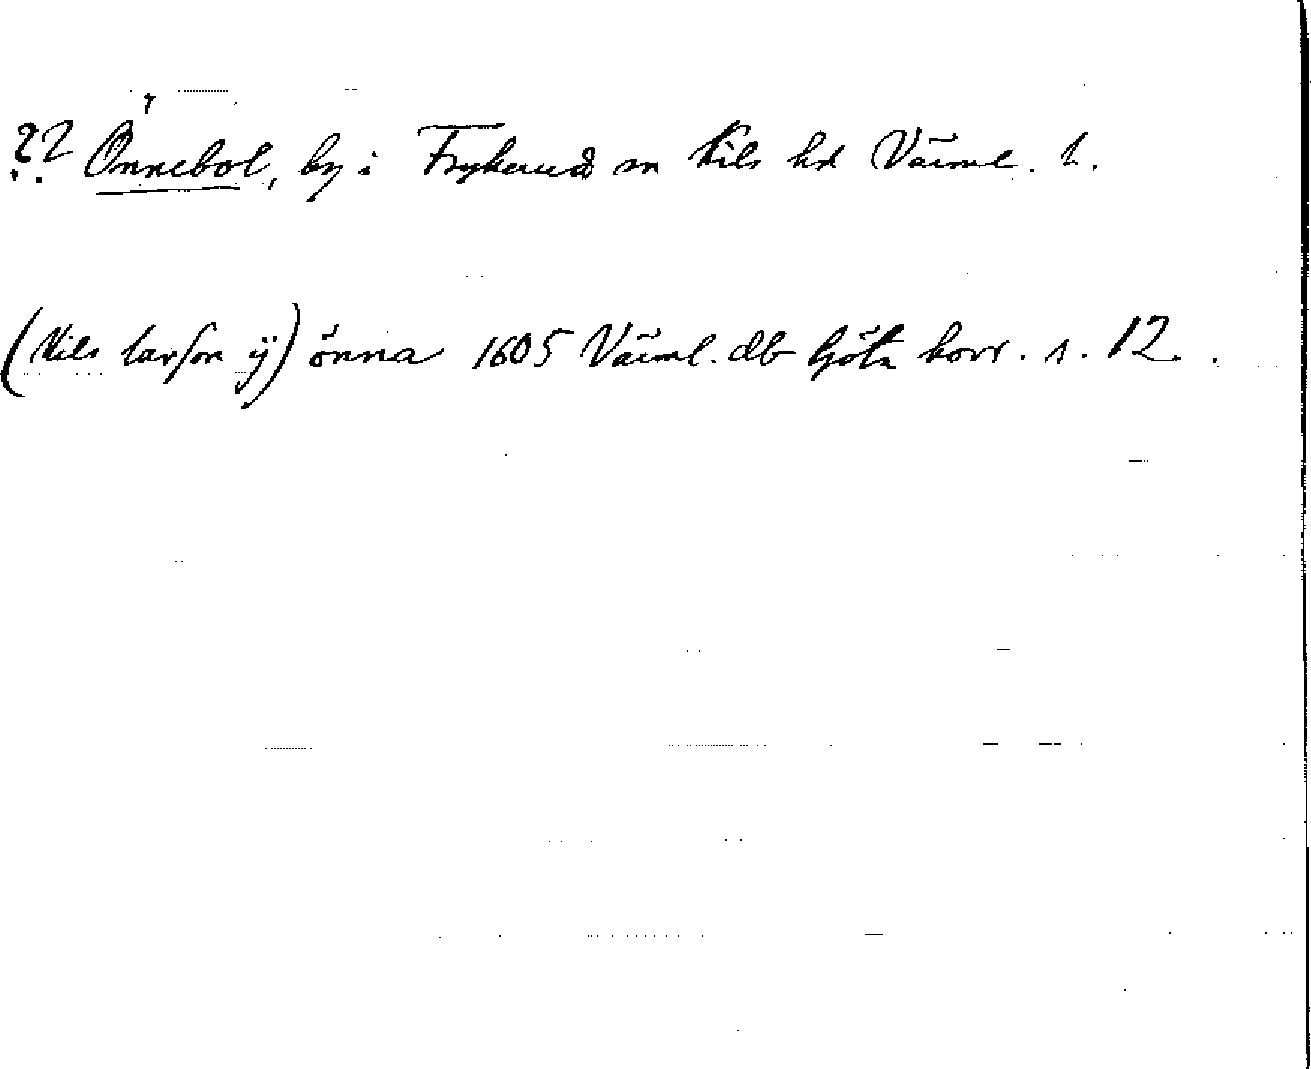 ?? Önnebol, by i Frykerud sn Kils hd Värml. l.
(Nils larson ÿ) önna 1605 Värml. db Götz korr. s. 12.